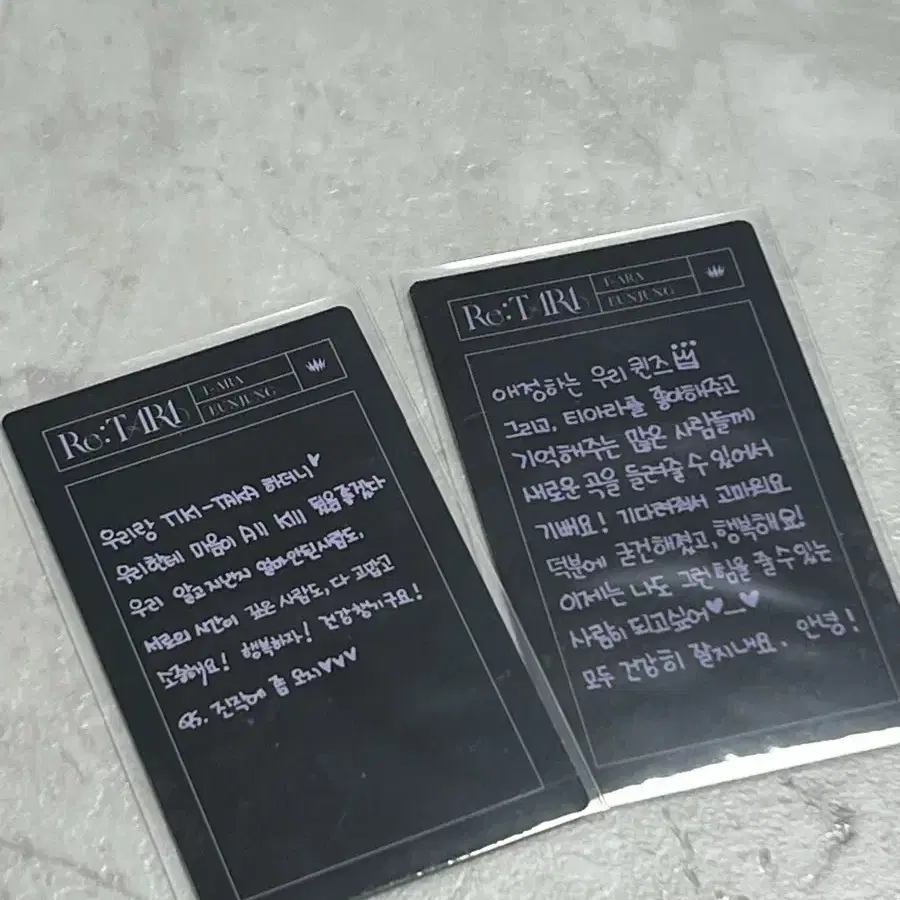 Re:T-ARA
T-ARA
EUNJUNG
우리랑 TIKI-TAKA 하더니♥
우리한테 마음이 All Kill 됐음 좋겠다
우리 알고지낸지 얼마안된사람도,
서로의 시간이 깊은 사람도, 다 고맙고
소중해요! 행복하자! 건강챙기구요!
진작에 좀 오지♥♥♥
Re:T-ARA
T-ARA
EUNJUNG
애정하는 우리 퀸즈
그리고, 티아라를 좋아해주고
기억해주는 많은 사람들께
새로운 곡을 들려줄 수 있어서
기뻐요! 기다려줘서 고마워요
덕분에 굳건해졌고, 행복해요!
이제는 나도 그런 힘을 줄 수 있는
사람이 되고싶어♥_♥
모두 건강히 잘지내요. 안녕!